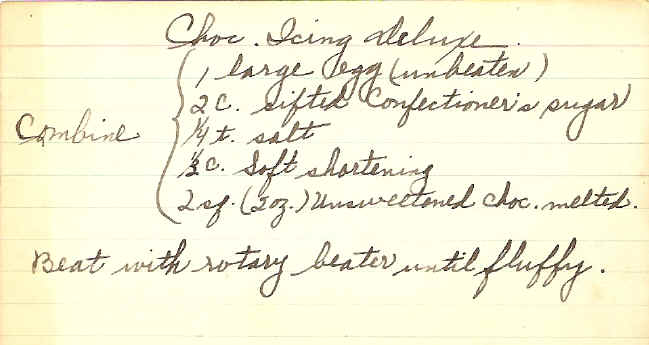 Choc. Icing Deluxe.
1 large egg (unbeaten)
2 c. sifted Confectioner's sugar
Combine
1/4 t. salt
1/3 c. Soft shortening
2 sq. (2 oz.) Unsweetened choc. melted.
Beat with rotary beater until fluffy.